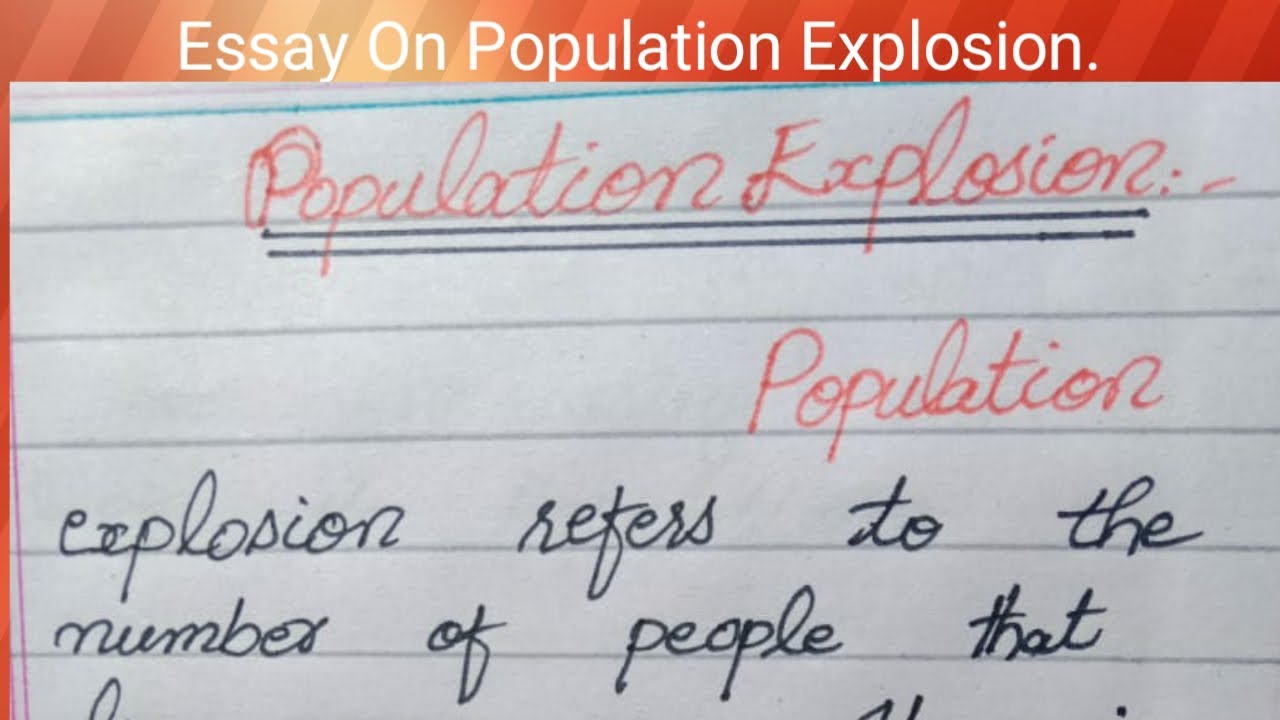 Essay On Population Explosion.
Population Explosion:-
Population
explosion refers to the
number of people that